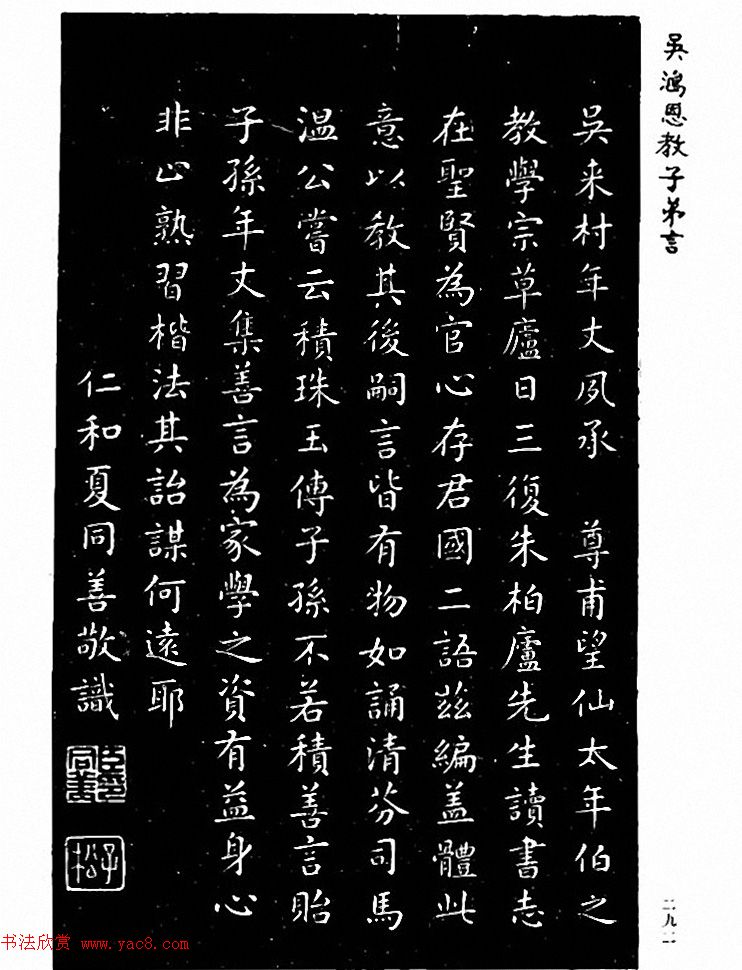 吳鴻恩教子弟言
吳来村年丈夙承 尊甫望仙太年伯之
教學宗草廬日三復朱柏廬先生讀書志
在聖賢為官心存君國二語茲編盖體此
意以教其後嗣言皆有物如誦清芬司馬
温公嘗云積珠玉傳子孫不若積善言貽
子孫年丈集善言為家學之資有益身心
非止熟習楷法其詒謀何遠耶
仁和夏同善敬識
臣夏同善
子松
二九二
书法欣赏 www.yac8.com